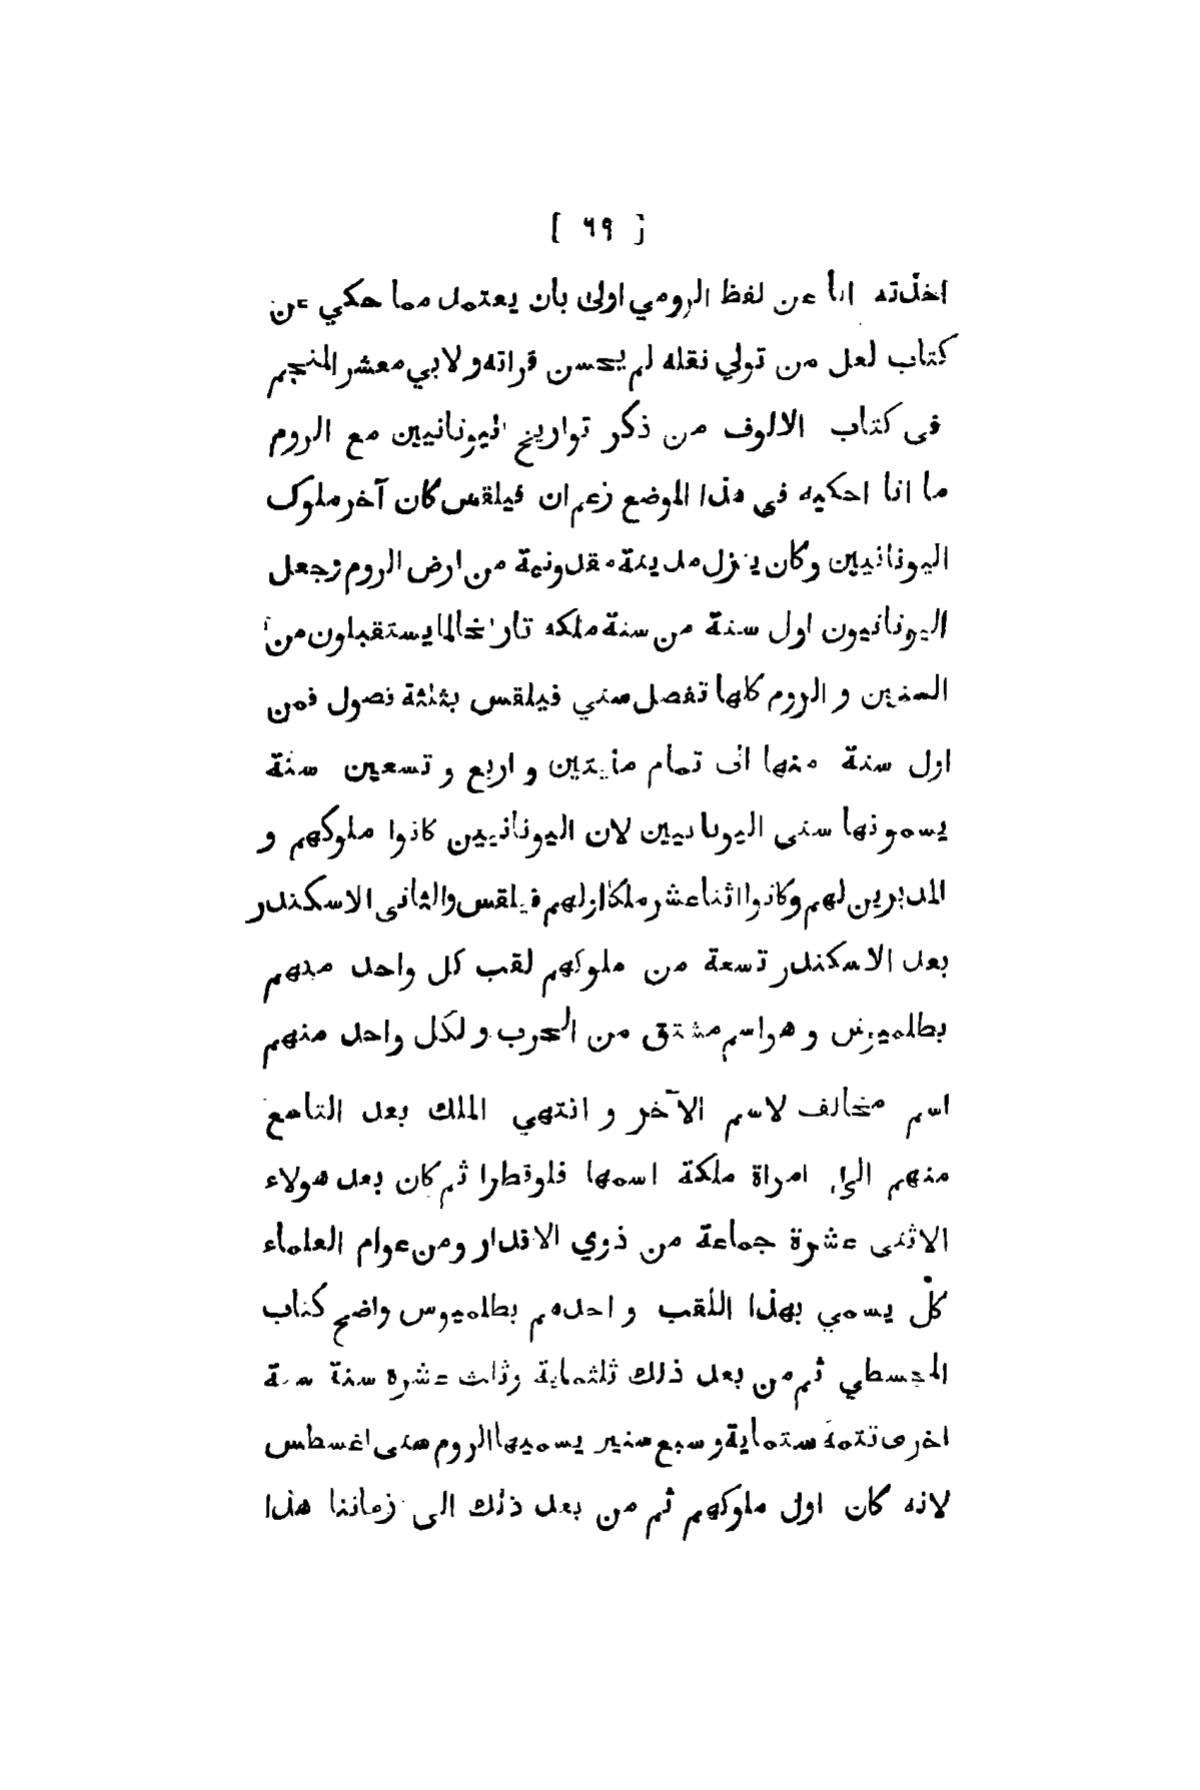 [ ٦٩ ]
اخذته انا عن لفظ الرومي اولى بان يعتمد مما حكي عن
كتاب لعل من تولي نقله لم يحسن قراته ولابي معشر المنجم
فى كتاب الالوف من ذكر تواريخ اليونانيين مع الروم
ما انا احكيه فى هذا الموضع زعم ان فيلقس كان آخر ملوك
اليونانيين وكان ينزل مدينة مقدونية من ارض الروم وجعل
اليونانيون اول سنة من سنة ملكه تاريخا لما يستقبلون من
السنين و الروم كلها تفصل سني فيلقس بثلثة فصول فمن
اول سنة منها الى تمام مايتين و اربع و تسعين سنة
يسمونها سنى اليونانيين لان اليونانيين كانوا ملوكهم و
المدبرين لهم وكانوا اثنا عشر ملكا اولهم فيلقس والثانى الاسكندر
بعد الاسكندر تسعة من ملوكهم لقب كل واحد منهم
بطلميوس و هو اسم مشتق من الحرب و لكل واحد منهم
اسم مخالف لاسم الآخر و انتهي الملك بعد التاسع
منهم الى امراة ملكة اسمها قلوقطرا ثم كان بعد هولاء
الاثنى عشرة جماعة من ذوي الاقدار ومن عوام العلماء
كلّ يسمي بهذا اللقب و احدهم بطلميوس واضح كتاب
المجسطي ثم من بعد ذلك ثلثماية وثلث عشرة سنة سنة
اخرى تتمة ستماية و سبع سنين يسميها الروم سنى اغسطس
لانه كان اول ملوكهم ثم من بعد ذلك الى زماننا هذا